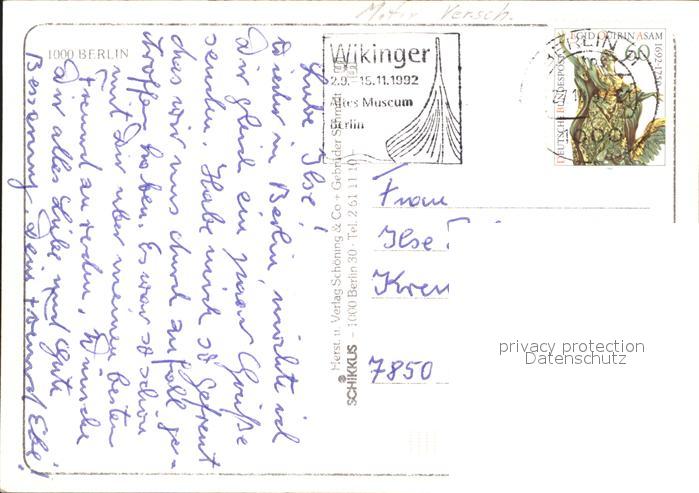 Motiv Versch.
1000 BERLIN
Wikinger
2.9. – 15.11.1992
Altes Museum
Berlin
COSMAS DAMIAN ASAM
EGID QUIRIN ASAM
1692-1750
DEUTSCHE BUNDESPOST
60
BERLIN
1000
Liebe Ilse!
Wieder in Berlin möchte ich
Dir gleich ein paar Grüße
senden. Habe mich so gefreut
dass wir uns durch Zufall ge-
troffen haben. Es war so schön
mit Dir über meinen besten
Freund zu reden. Wünsche
Dir alles Liebe und gute
Besserung. Dein Freund
Herst. u. Verlag Schöning & Co + Gebrüder Schmidt
SCHIKKUS – 1000 Berlin 30 · Tel. 2 61 11 10 –
Frau
Ilse
Kren
7850
privacy protection
Datenschutz